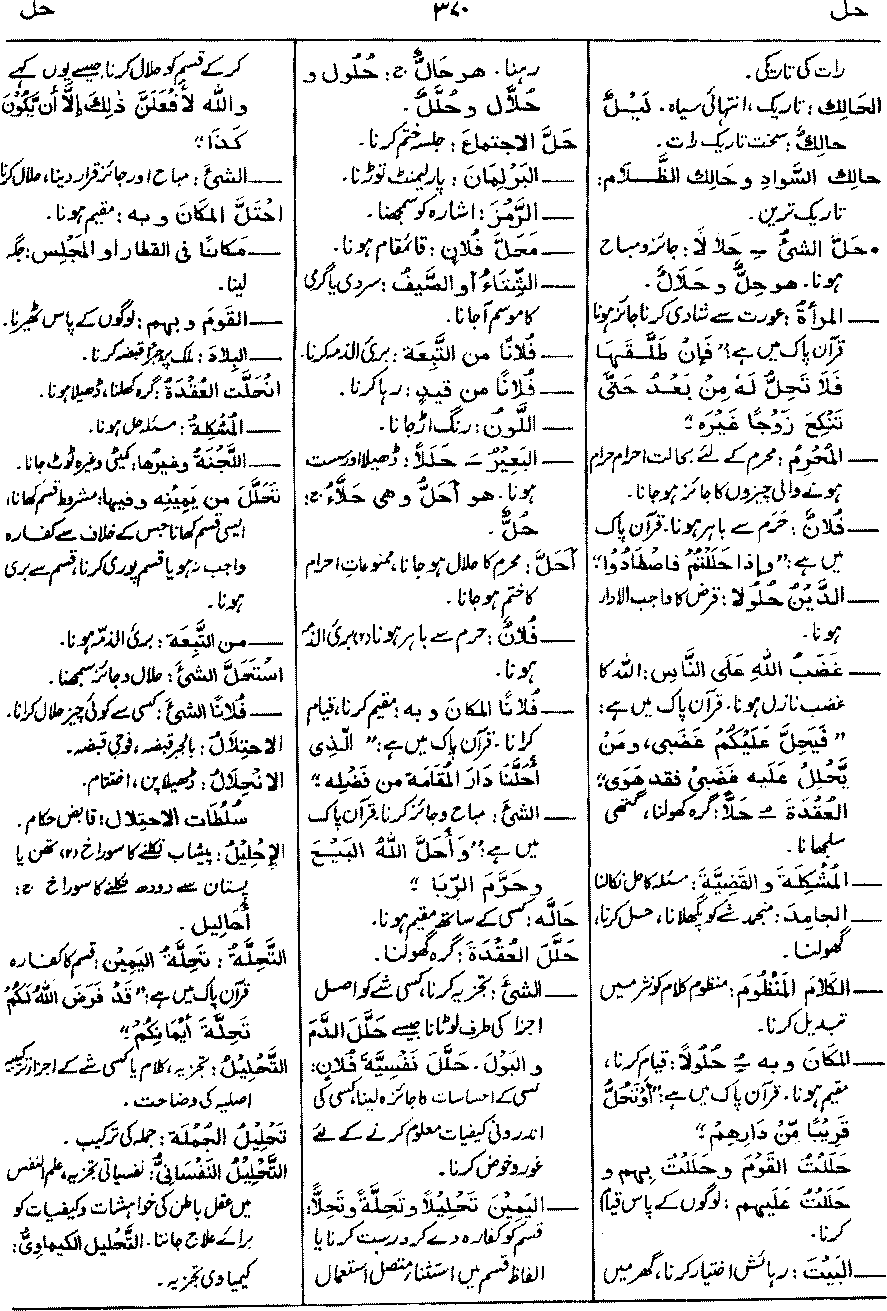 حل
۳۷۰
حل
رات کی تاریکی۔
الحَالِك: تاریک، انتہائی سیاہ۔ لَیْلٌ
حالِكٌ: سخت تاریک رات۔
حالِك السَّوادِ و حَالِك الظَّلَام:
تاریک ترین۔
• حَلَّ الشئُ ـِ حَلَالاً: جائز و مباح
ہونا۔ هو حِلٌّ و حَلَالٌ۔
— المرأةُ: عورت سے شادی کرنا جائز ہونا
قرآن پاک میں ہے: "فَإِنْ طَلَّقَهَا
فَلَا تَحِلُّ لَهُ مِنْ بَعْدُ حَتَّى
تَنْكِحَ زَوْجًا غَيْرَه"
— المُحْرِمُ: محرم کے لئے بحالت احرام حرام
ہونے والی چیزوں کا جائز ہو جانا۔
— فُلانٌ: حَرَم سے باہر ہونا۔ قرآن پاک
میں ہے: "وإذا حَلَلْتُم فاصْطَادُوا"
— الدَّيْنُ حُلُولًا: قرض کا واجب الادار
ہونا۔
— غَضَبُ اللهِ عَلَى النَّاسِ: اللہ کا
غضب نازل ہونا۔ قرآن پاک میں ہے:
"فَيَحِلَّ عَلَيْكُمْ غَضَبِى، ومَنْ
يَّحْلِلْ عليه غَضَبِىْ فقد هَوَى"
العُقْدَةَ ـُ حَلًّا: گرہ کھولنا، گتھی
سلجھانا۔
— المُشْكِلَةَ و القَضِيَّةَ: مسئلہ کا حل نکالنا
— الجامِدَ: منجمد شے کو پگھلانا، حل کرنا،
گھولنا۔
— الكَلَامَ المَنْظُومَ: منظوم کلام کو نثر میں
تبدیل کرنا۔
— المكانَ و به ـُِ حُلُولًا: قیام کرنا،
مقیم ہونا۔ قرآن پاک میں ہے: "أوْ تَحُلُّ
قَرِيْبًا مِّنْ دَارِهِمْ"
حَلَلْتُ القَوْمَ و حَلَلْتُ بِهِم و
حَلَلْتُ عَلَيهم: لوگوں کے پاس قیام
کرنا۔
— البَيْتَ: رہائش اختیار کرنا، گھر میں
رہنا۔ هو حَالٌّ ج: حُلُول و
حُلَّال و حُلَّلٌ۔
حَلَّ الاجتماعَ: جلسہ ختم کرنا۔
— البَرْلمانَ: پارلیمنٹ توڑنا۔
— الرَّمْزَ: اشارہ کو سمجھنا۔
— مَحَلَّ فُلانٍ: قائمقام ہونا۔
— الشِّتَاءُ أو الصَّيفُ: سردی یا گرمی
کا موسم آجانا۔
— فُلانًا من التَّبِعَة: بریٔ الذمہ کرنا۔
— فُلانًا من قَيدٍ: رہا کرنا۔
— اللَّونُ: رنگ اڑ جانا۔
— البَعِيْرُ ـَ حَلَلًا: ڈھیلا اور سست
ہونا۔ هو أحَلُّ و هى حَلَّاءُ ج:
حُلٌّ۔
أَحَلَّ: محرم کا حلال ہو جانا، ممنوعات احرام
کا ختم ہو جانا۔
— فُلانٌ: حرم سے باہر ہونا (۲) بریٔ الذمہ
ہونا۔
— فُلانًا المكانَ و به: مقیم کرنا، قیام
کرانا۔ قرآن پاک میں ہے: "الَّذِى
أَحَلَّنَا دَارَ المُقَامَةِ من فَضْلِه"
— الشئَ: مباح و جائز کرنا۔ قرآن پاک
میں ہے: "وَأَحَلَّ اللهُ البَيْعَ
و حَرَّمَ الرِّبَا"
حَالَّه: کسی کے ساتھ مقیم ہونا۔
حَلَّلَ العُقْدَةَ: گرہ کھولنا۔
— الشئَ: تجزیہ کرنا، کسی شے کو اصل
اجزا کی طرف لوٹانا جیسے حَلَّلَ الدَّمَ
و البَوْلَ۔ حَلَّلَ نَفْسِيَّةَ فُلَانٍ:
کسی کے احساسات کا جائزہ لینا، کسی کی
اندرونی کیفیات معلوم کرنے کے لئے
غور و خوض کرنا۔
— اليَمِيْنَ تَحْلِيْلًا و تَحِلَّةً و تَحِلًّا:
قسم کو کفارہ دے کر درست کرنا یا
الفاظ قسم میں استثناء متصل استعمال
کر کے قسم کو حلال کرنا، جیسے یوں کہے
والله لأَفْعَلَنَّ ذٰلِكَ إلَّا أن يَّكُوْنَ
كَذَا"
— الشئَ: مباح اور جائز قرار دینا، حلال کرنا
احْتَلَّ المَكانَ و به: مقیم ہونا۔
— مَكانًا فى القطار او المَجْلِس: جگہ
لینا۔
— القَومَ و بِهم: لوگوں کے پاس ٹھہرنا۔
— البِلادَ: ملک پر جبراً قبضہ کرنا۔
انْحَلَّت العُقْدَةُ: گرہ کھلنا، ڈھیلا ہونا۔
— المُشْكِلَةُ: مسئلہ حل ہونا۔
— اللَّجْنَةُ وغيرُها: کمیٹی وغیرہ ٹوٹ جانا۔
تَحَلَّلَ من يَمِيْنِه و فيها: مشروط قسم کھانا،
ایسی قسم کھانا جس کے خلاف سے کفارہ
واجب نہ ہو یا قسم پوری کرنا، قسم سے بری
ہونا۔
— من التَّبِعَة: بریٔ الذمہ ہونا۔
اسْتَحَلَّ الشئَ: حلال و جائز سمجھنا۔
— فُلَانًا الشئَ: کسی سے کوئی چیز حلال کرانا۔
الاحتِلَالُ: بالجبر قبضہ، فوجی قبضہ۔
الانْحِلَالُ: ڈھیلا پن، اختتام۔
سُلُطَات الاحتِلَال: قابض حکام۔
الإحْلِيْلُ: پیشاب نکلنے کا سوراخ (۲) تھن یا
پستان سے دودھ نکلنے کا سوراخ ج:
أَحَالِيل۔
التَّحِلَّةُ: تَحِلَّةُ اليَمِيْن: قسم کا کفارہ
قرآن پاک میں ہے: "قَدْ فَرَضَ اللهُ لَكُمْ
تَحِلَّةَ أَيْمَانِكُمْ"
التَّحْلِيْلُ: تجزیہ، کلام یا کسی شے کے اجزاء ترکیبیہ
اصلیہ کی وضاحت۔
تَحْلِيْلُ الجُمْلَة: جملہ کی ترکیب۔
التَّحْلِيْلُ النَّفْسَانِىُّ: نفسیاتی تجزیہ، علم النفس
میں عقل باطن کی خواہشات و کیفیات کو
برائے علاج جاننا۔ التَّحْلِيل الكِيماوِىُّ:
کیمیاوی تجزیہ۔